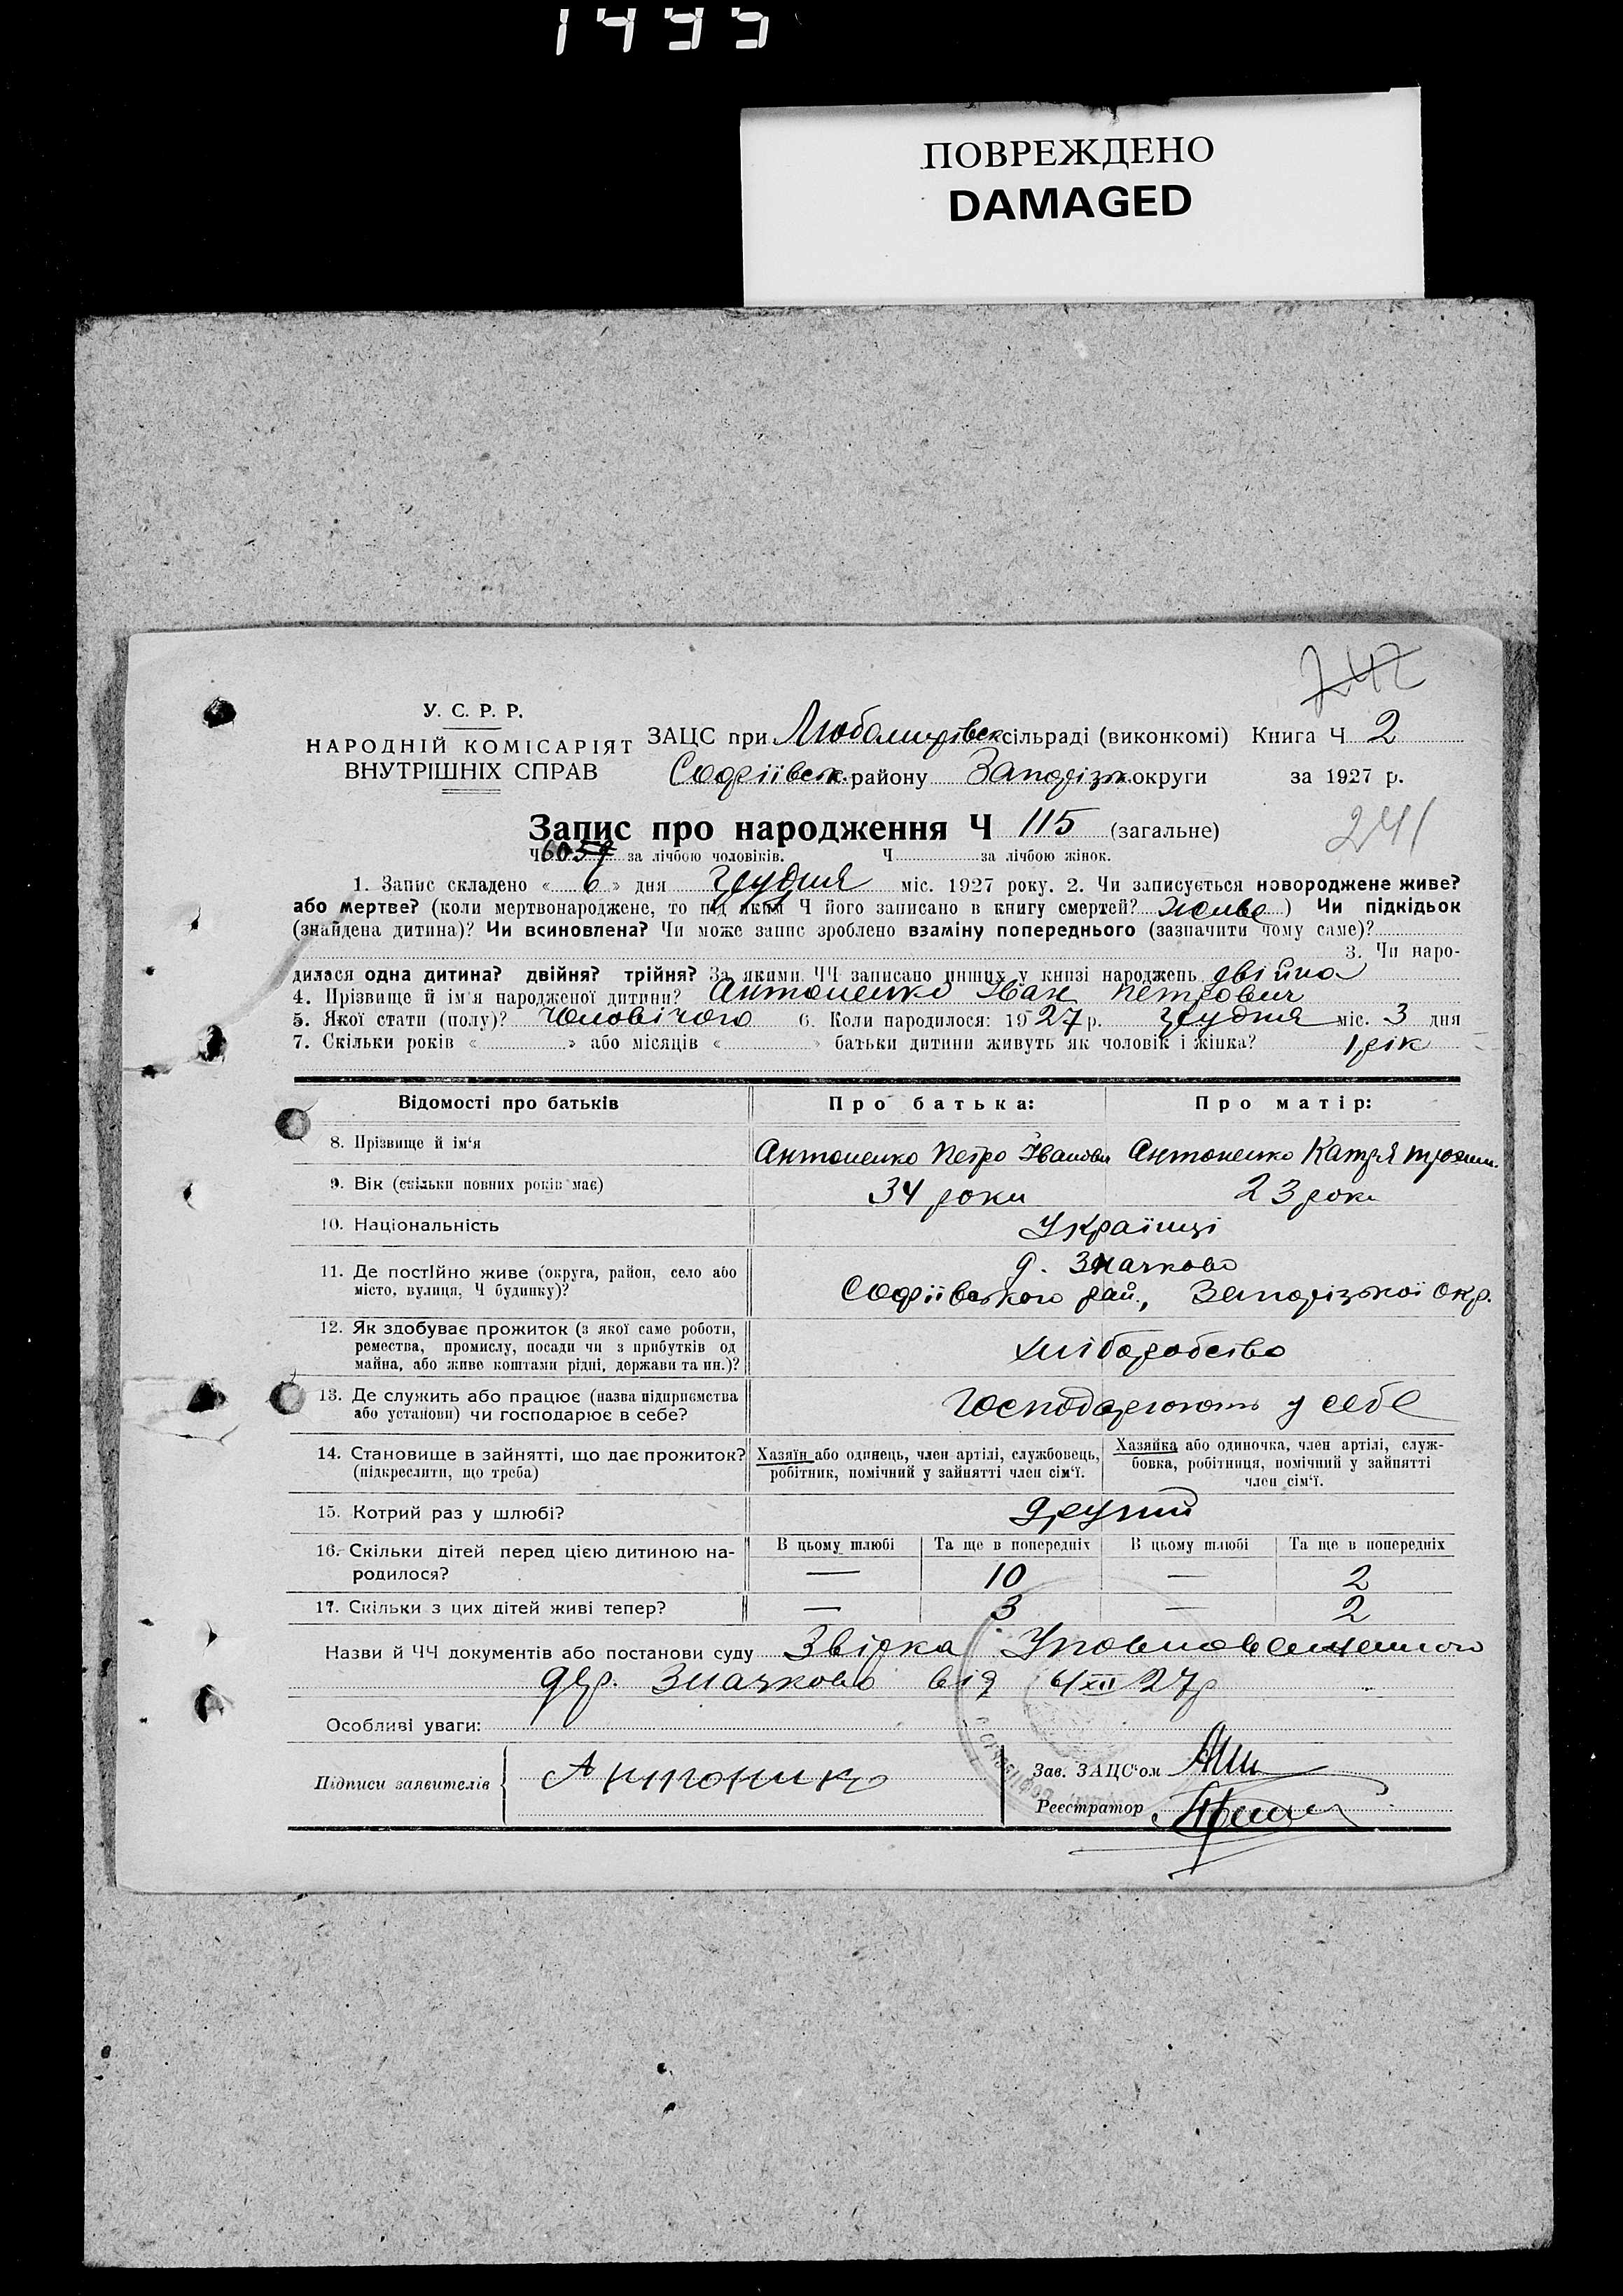 1495
ПОВРЕЖДЕНО
DAMAGED
242
У. С. Р. Р.
НАРОДНІЙ КОМІСАРІЯТ
ВНУТРІШНІХ СПРАВ
ЗАЦС при Любомирівск сільраді (виконкомі) Книга Ч 2
Софіївськ. району Запорізьк округи за 1927 р.
Запис про народження Ч 115 (загальне)
241
Ч 60 59 за лічбою чоловіків. Ч за лічбою жінок.
1. Запис складено « 6 » дня грудня міс. 1927 року. 2. Чи записується новороджене живе?
або мертве? (коли мертвонароджене, то під яким Ч його записано в книгу смертей? живе ) Чи підкідьок
(знайдена дитина)? Чи всиновлена? Чи може запис зроблено взаміну попереднього (зазначити чому саме)?
3. Чи наро-
дилася одна дитина? двійня? трійня? За якими ЧЧ записано инших у книзі народжень двійня
4. Прізвище й ім'я народженої дитини? Антоненко Іван Петрович
5. Якої стати (полу)? Чоловічого 6. Коли народилося: 1927 р. грудня міс. 3 дня
7. Скільки років « » або місяців « » батьки дитини живуть як чоловік і жінка? 1 рік
Відомості про батьків Про батька: Про матір:
8. Прізвище й ім'я Антоненко Петро Іванови Антоненко Катря
9. Вік (скільки повних років має) 34 роки 23 роки
10. Національність Українці
11. Де постійно живе (округа, район, село або
місто, вулиця, Ч будинку)?
д. Значково
Софіївського рай., Запорізької окр.
12. Як здобуває прожиток (з якої саме роботи,
ремества, промислу, посади чи з прибутків од
майна, або живе коштами рідні, держави та ин.)?
хліборобство
13. Де служить або працює (назва підприємства
або установи) чи господарює в себе?
Господарюють у себе
14. Становище в зайнятті, що дає прожиток?
(підкреслити, що треба)
Хазяїн або одинець, член артілі, службовець,
робітник, помічний у зайнятті член сім'ї.
Хазяйка або одиночка, член артілі, служ-
бовка, робітниця, помічний у зайнятті
член сім'ї.
15. Котрий раз у шлюбі? другий
16. Скільки дітей перед цією дитиною на-
родилося?
В цьому шлюбі Та ще в попередніх В цьому шлюбі Та ще в попередніх
— 10 — 2
17. Скільки з цих дітей живі тепер? — 3 — 2
Назви й ЧЧ документів або постанови суду Звірка Уповноваженного
дер. Значково від 6/XII 27р
Особливі уваги:
Підписи заявителів Антоненко
Зав. ЗАЦС'ом
Реєстратор